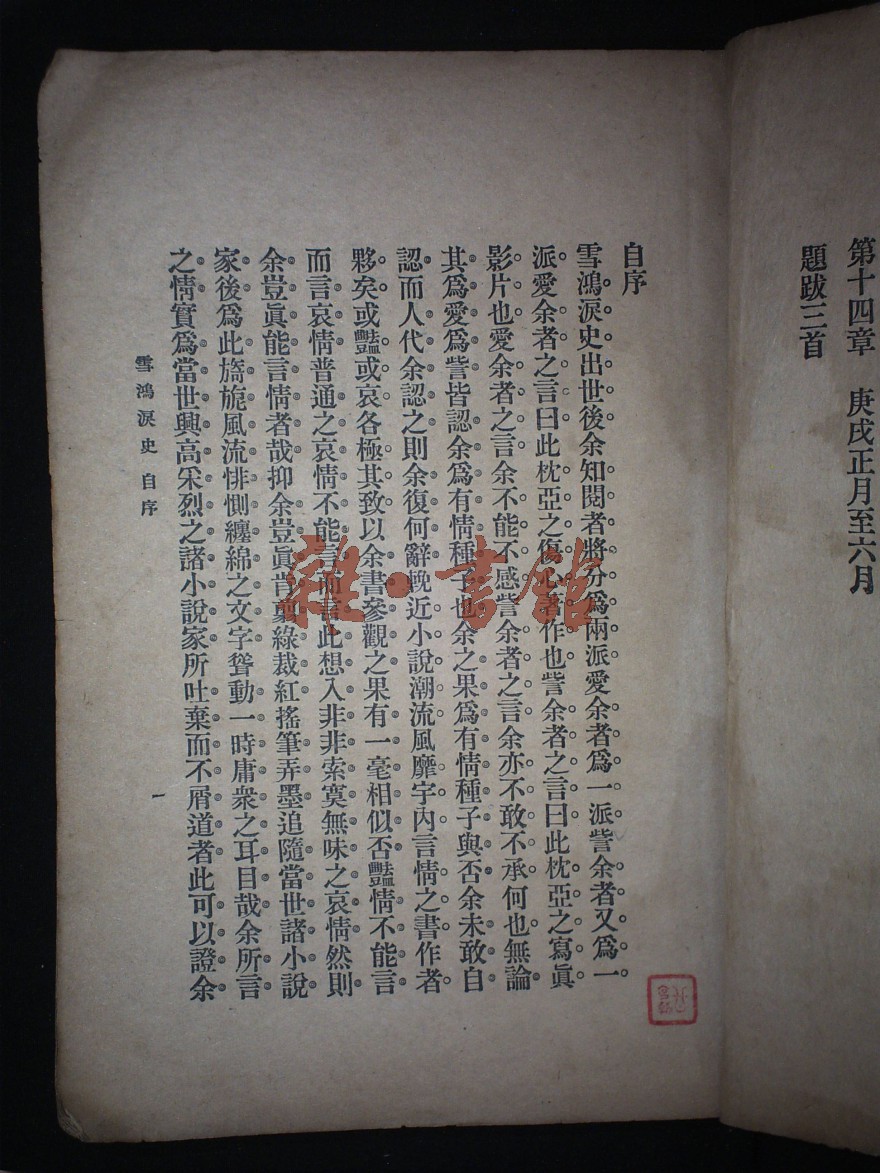 第十四章　庚戌正月至六月
題跋三首
自序
雪鴻淚史出世後余知閱者將分爲兩派愛余者爲一派訾余者又爲一
派愛余者之言曰此枕亞之傷心著作也訾余者之言曰此枕亞之寫眞
影片也愛余者之言余不能不感訾余者之言余亦不敢不承何也無論
其爲愛爲訾皆認余爲有情種子也余之果爲有情種子與否余未敢自
認而人代余認之則余復何辭輓近小說潮流風靡宇內言情之書作者
夥矣或豔或哀各極其致以余書參觀之果有一毫相似否豔情不能言
而言哀情普通之哀情不能言而言此想入非非索寞無味之哀情然則
余豈眞能言情者哉抑余豈眞肯剪綠裁紅搖筆弄墨追隨當世諸小說
家後爲此旖旎風流悱惻纏綿之文字聳動一時庸衆之耳目哉余所言
之情實爲當世興高采烈之諸小說家所吐棄而不屑道者此可以證余
雪鴻淚史 自序
一
雜·書館